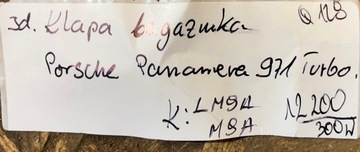 3d. Klapa bagażnika Q 128
Porsche Panamera 971 Turbo.
K: LM9A N200
M9A 300W